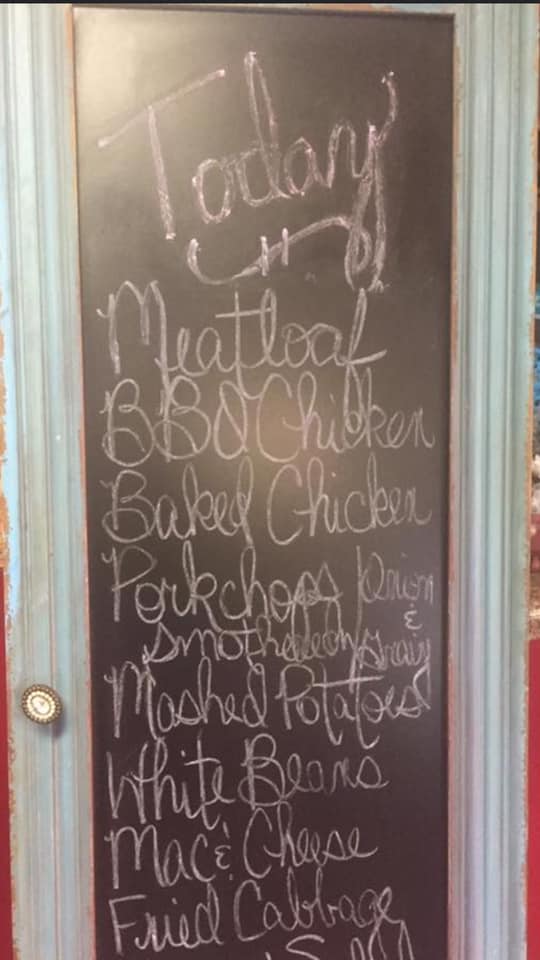 Today
Meatloaf
BBQ Chicken
Baked Chicken
Porkchops Onion
&
Smothered Gravy
Mashed Potatoes
White Beans
Mac & Cheese
Fried Cabbage